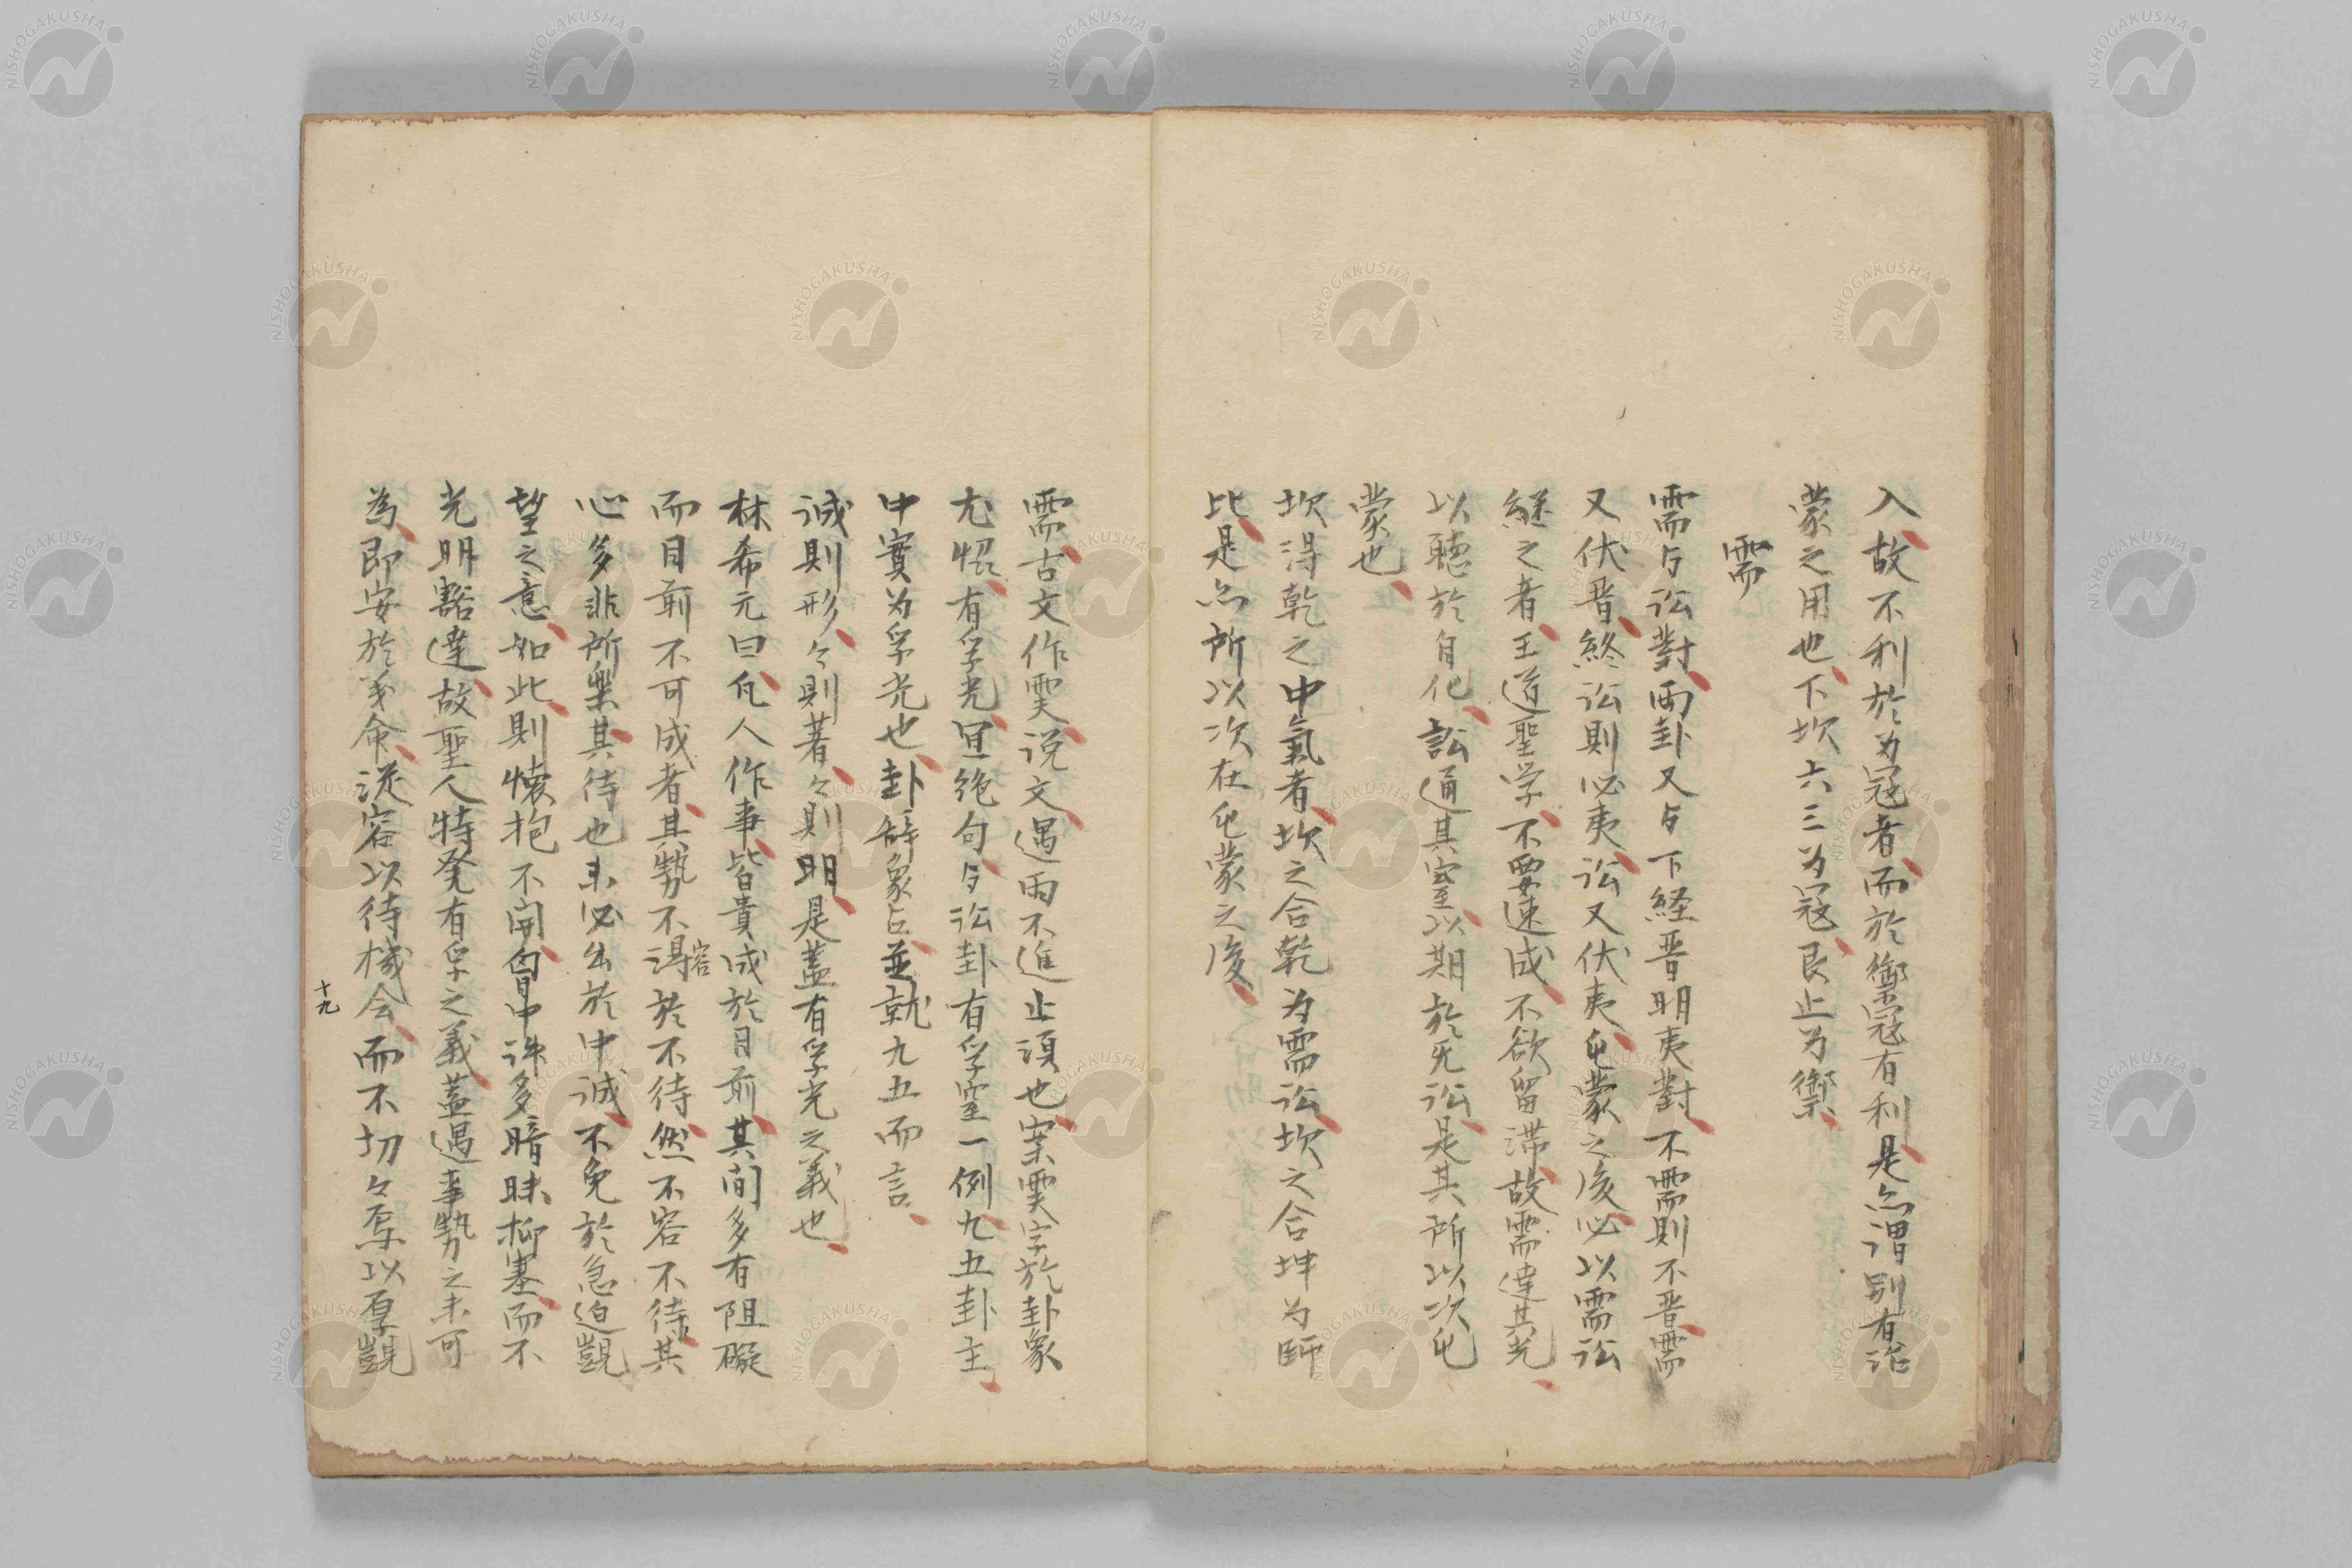 入故不利於为冦者而於禦冦有利是亦謂別有治
蒙之用也下坎六三为冦艮止为禦
需
需与訟對兩卦又与下経晋明夷對不需則不晋需
又伏晋終訟則必夷訟又伏夷屯蒙之後必以需訟
継之者王道聖学不要速成不欲留滞故需達其光
以聽於自化訟通其窒以期於无訟是其所以次屯
蒙也
坎得乾之中氣者坎之合乾为需訟坎之合坤为師
比是亦所以次在屯蒙之後
需古文作䨓说文遇雨不進止湏也案䨓字於卦象
尤恊有孚光冝绝句与訟卦有孚窒一例九五卦主
中實为孚光也卦辞象占並就九五而言
誠則形々則著々則明是蓋有孚光之義也
林希元曰凢人作事皆貴成於目前其间多有阻礙
而目前不可成者其勢不得容於不待然不容不待其
心多非所樂其待也未必出於中誠不免於急迫覬
望之意如此則懐抱不開胷中許多暗昧抑塞而不
光明豁達故聖人特発有孚之義蓋遇事勢之未可
為即安於義命従容以待機会而不切々焉以厚覬
十九
NISHOGAKUSHA